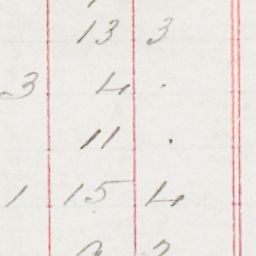 13 3
3 4 .
11 .
1 15 4